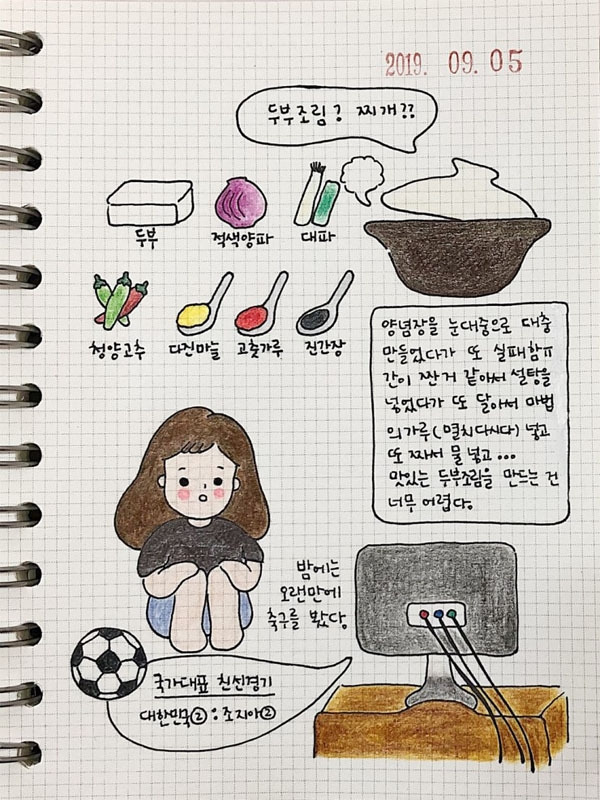 2019. 09. 05
두부조림? 찌개??
두부
적색양파
대파
청양고추
다진마늘
고춧가루
진간장
양념장을 눈대중으로 대충
만들었다가 또 실패함ㅠ
간이 짠거 같아서 설탕을
넣었다가 또 달아서 마법
의가루(멸치다시다) 넣고
또 짜서 물 넣고...
맛있는 두부조림을 만드는 건
너무 어렵다.
밤에는
오랜만에
축구를 봤다.
국가대표 친선경기
대한민국② : 조지아②